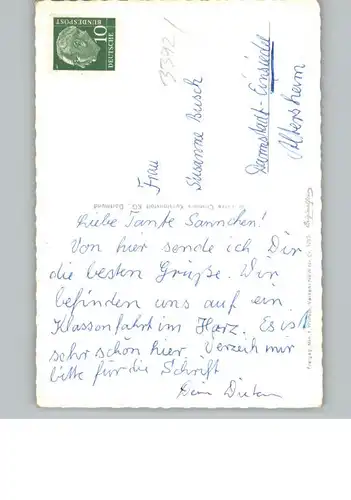 10
DEUTSCHE
BUNDESPOST
3392/
Frau
Susanne Busch
Darmstadt-Einsiedel
Altersheim
Liebe Tante Sannchen!
Von hier sende ich Dir
die besten Grüße. Wir
befinden uns auf ein
Klassenfahrt im Harz. Es ist
sehr schön hier. Verzeih mir
bitte für die Schrift
Dein Dieter